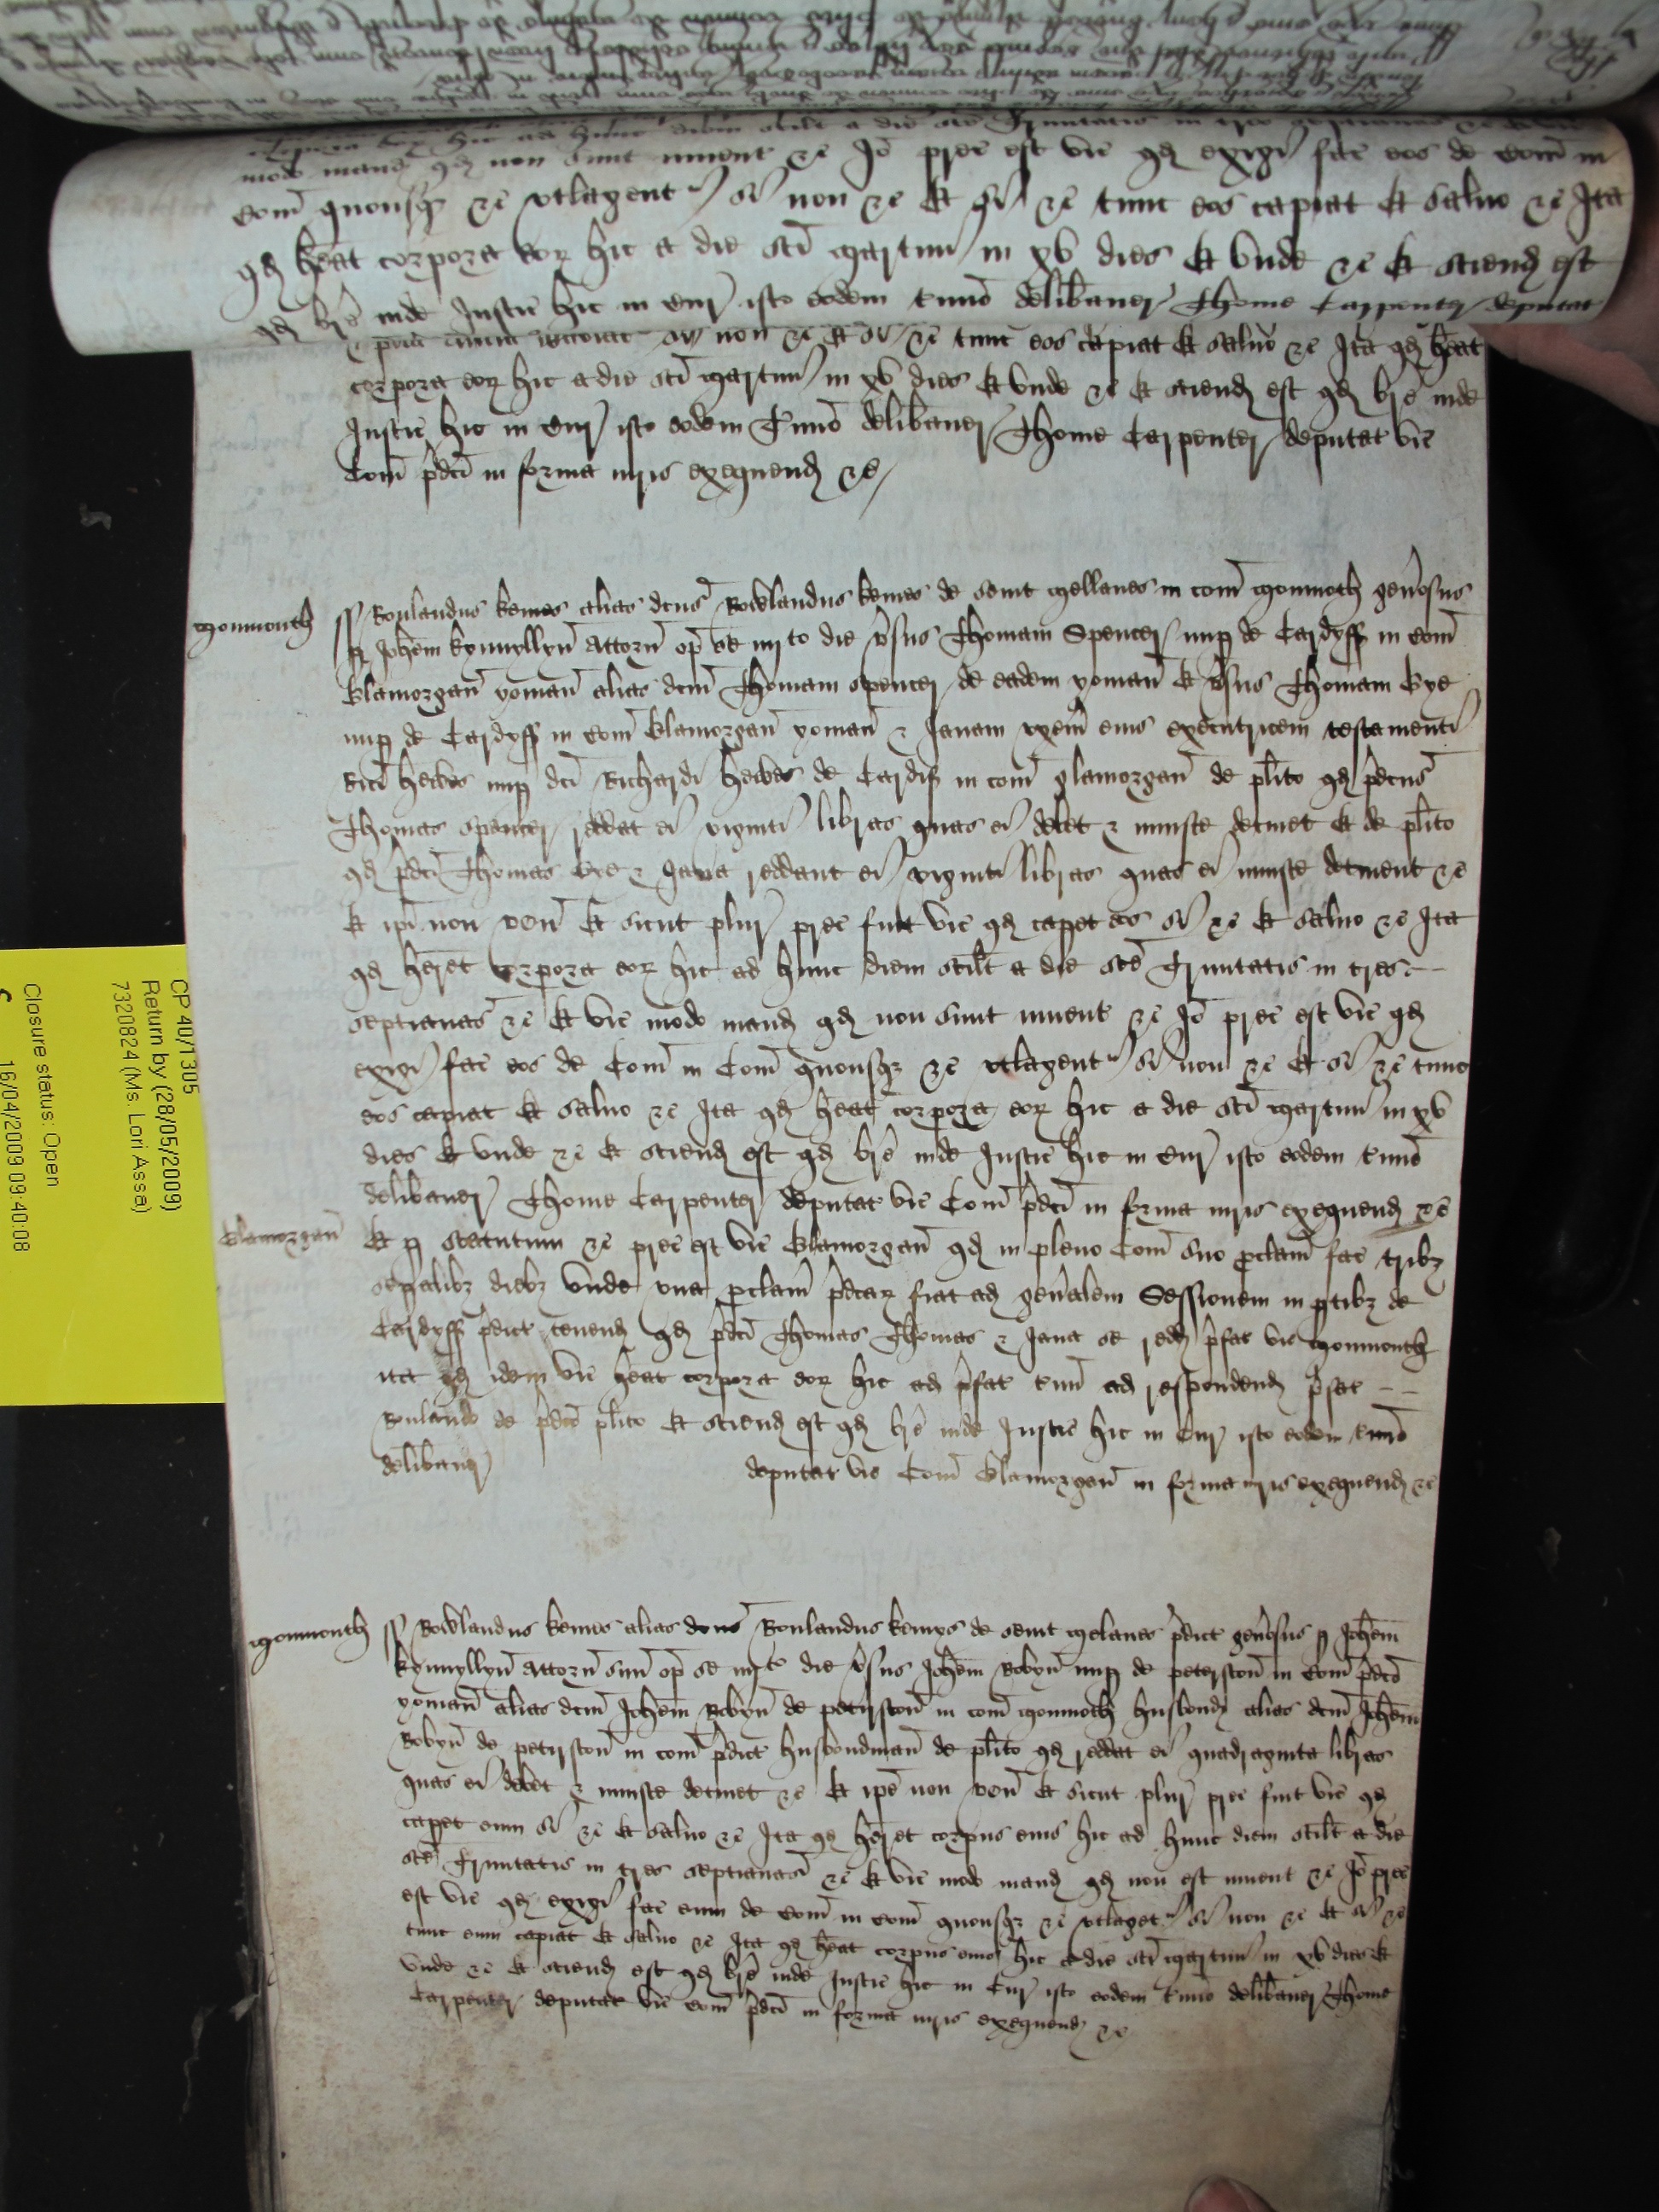 modo mand qd non sunt invent &c Io prec est vic qd exigi fac eos de Com in
Com quousq &c utlagent si non &c Et si &c tunc eos capiat Et salvo &c Ita
qd heat corpora eor hic a die sci Martini in xv dies Et unde &c Et sciend est
qd bre inde Justic hic in Cur isto eodem tmino delibaver Thome Carpenter deputat
si non &c Et si &c tunc eos capiat Et salvo &c Ita qd heat
corpora eor hic a die sci Martini in xv dies Et unde &c Et sciend est qd bre inde
Justic hic in Cur isto eodem Tmino delibaver Thome Carpenter deputat vic
Com pdci in forma juris exequend &c
Monmouth
Roulandus kemes alias dcus Rowlandus kemes de seint Mellanes in com Monmoth generosus
p Johem kynnyllyn Attorn op se iiijto die vsus Thomam Spencer nup de Cardyff in Com
Glamorgan yoman alias dcm Thomam Spencer de eadem yoman Et vsus Thomam Gye
nup de Cardyff in Com Glamorgan yoman & Janam uxem eius executricem testamenti
Rici hewes nup dci Richardi hewes de Cardif in com glamorgan de plito qd pdcus
Thomas Spencer reddat ei viginti libras quas ei debet & iniuste detinet Et de plito
qd pdci Thomas Gye & Jana reddant ei viginti libras quas ei iniuste detinent &c
Et ipi non ven Et sicut plur prec fuit vic qd capet eos si &c Et salvo &c Ita
qd heret corpora eor hic ad hunc diem scilt a die sce Trinitatis in tres
septianas &c Et vic modo mand qd non sunt invent &c Io prec est vic qd
exigi fac eos de Com in Com quousq &c utlagent si non &c Et si &c tunc
eos capiat Et salvo &c Ita qd heat corpora eor hic a die sci Martini in xv
dies Et unde &c Et sciend est qd bre inde Justic hic in Cur isto eodem tmino
delibaver Thome Carpenter deputat vic Com pdci in forma juris exequend &c
Glamorgan
Et p statutum &c prec est vic Glamorgan qd in pleno Com suo pclam fac tribz
sepalibz diebz unde una pclam pdcar fiat ad genalem Sessionem in ptibz de
Cardyff pdict tenend qd pdci Thomas Thomas & Jana se redd pfat vic Monmouth
ita qd idem vic heat corpora eor hic ad pfat tmin ad respondend pfat
Roulando de pdco plito Et sciend est qd bre inde Justic hic in Cur isto eodem tmino
delibaver deputat vic Com Glamorgan in forma juris exequend &c
Monmouth
Rowlandus kemes alias dcus Roulandus kemys de seint Melanes pdict generosus p Johem
kynnyllyn Attorn suu op se iiijto die vsus Johem Robyn nup de peterston in Com pdco
yoman alias dcm Johem Robyn de petirston in com Monmoth husbond alias dcm Johem
Robyn de petirston in com pdict husbondman de plito qd reddat ei quadraginta libras
quas ei debet & iniuste detinet &c Et ipe non ven Et sicut plur prec fuit vic qd
capet eum si &c Et salvo &c Ita qd heret corpus eius hic ad hunc diem scilt a die
sce Trinitatis in tres septianas &c Et vic modo mand qd non est invent &c Io prec
est vic qd exigi fac eum de Com in Com quousq &c utlaget si non &c Et si &c
tunc eum capiat Et salvo &c Ita qd heat corpus eius hic a die sci Martini in xv dies Et
unde &c Et sciend est qd bre inde Justic hic in Cur isto eodem tmino delibaver Thome
Carpenter deputat vic Com pdci in forma juris exequend &c
CP 40/1305
Return by (28/05/2009)
7320824 (Ms. Lori Assa)
Closure status: Open
16/04/2009 09:40:08